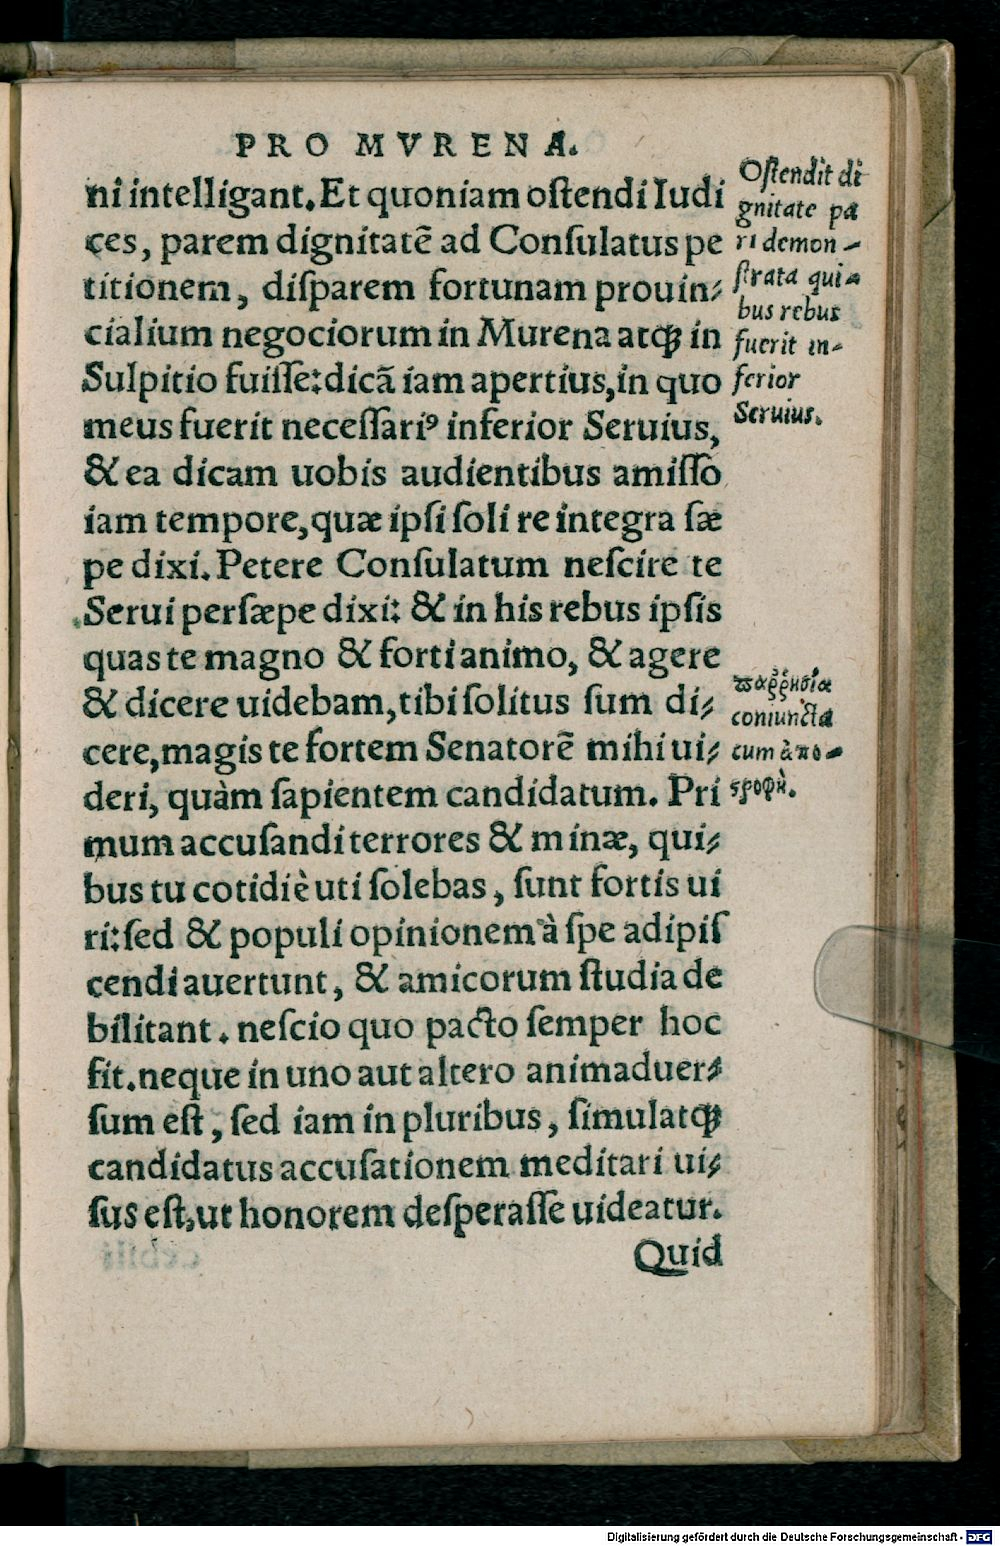 PRO MVRENA.
ni intelligant. Et quoniam oſtendi Iudi
ces, parem dignitatē ad Conſulatus pe
titionem, diſparem fortunam prouin-
cialium negociorum in Murena atqꝫ in
Sulpitio fuiſſe: dicā iam apertius, in quo
meus fuerit neceſſariꝰ inferior Seruius,
& ea dicam uobis audientibus amiſſo
iam tempore, quæ ipſi ſoli re integra ſæ
pe dixi. Petere Conſulatum neſcire te
Serui perſæpe dixi: & in his rebus ipſis
quas te magno & forti animo, & agere
& dicere uidebam, tibi ſolitus ſum di-
cere, magis te fortem Senatorē mihi ui-
deri, quàm ſapientem candidatum. Pri
mum accuſandi terrores & minæ, qui-
bus tu cotidiè uti ſolebas, ſunt fortis ui
ri: ſed & populi opinionem à ſpe adipiſ
cendi auertunt, & amicorum ſtudia de
bilitant. neſcio quo pacto ſemper hoc
fit. neque in uno aut altero animaduer-
ſum eſt, ſed iam in pluribus, ſimulatqꝫ
candidatus accuſationem meditari ui-
ſus eſt, ut honorem deſperaſſe uideatur.
Quid
Oſtendit di
gnitate pa
ri demon-
ſtrata qui-
bus rebus
fuerit in-
ferior
Seruius.
ϖαῤῥησία
coniuncta
cum ἀπο-
ϛροφῇ.
Digitalisierung gefördert durch die Deutsche Forschungsgemeinschaft - DFG